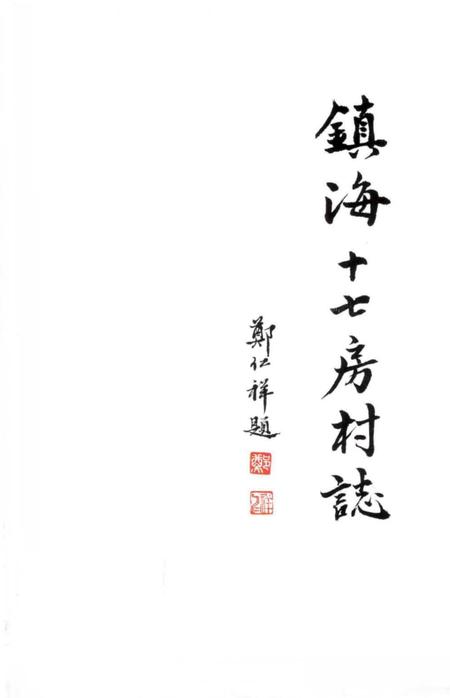 鎮海十七房村誌
鄭仁祥題